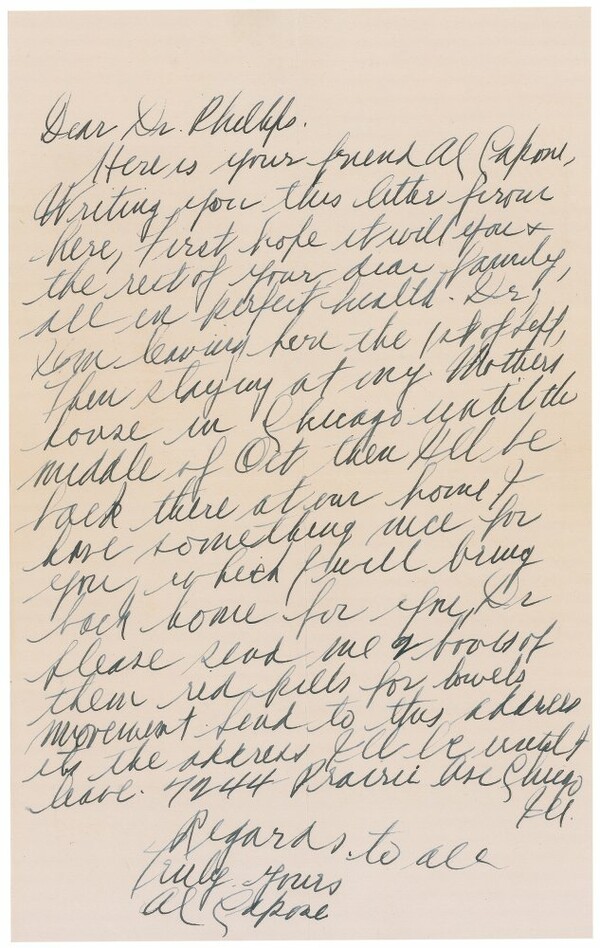 Dear Dr. Phillips.
Here is your friend Al Capone,
Writing you this letter from
here, first hope it will you &
the rest of your dear family,
all in perfect health. Dr,
Im leaving here the 1st of Sept,
then staying at my Mothers
house in Chicago until the
middle of Oct then Ill be
back there at our home I
have something nice for
you, which I will bring
back home for you, Dr
please send me 2 boxes of
them red pills for bowels
movement send to this address
its the address Ill be until I
leave. 7244 Prairie Ave Chicago
Ill.
Regards to all
Truly yours
Al Capone